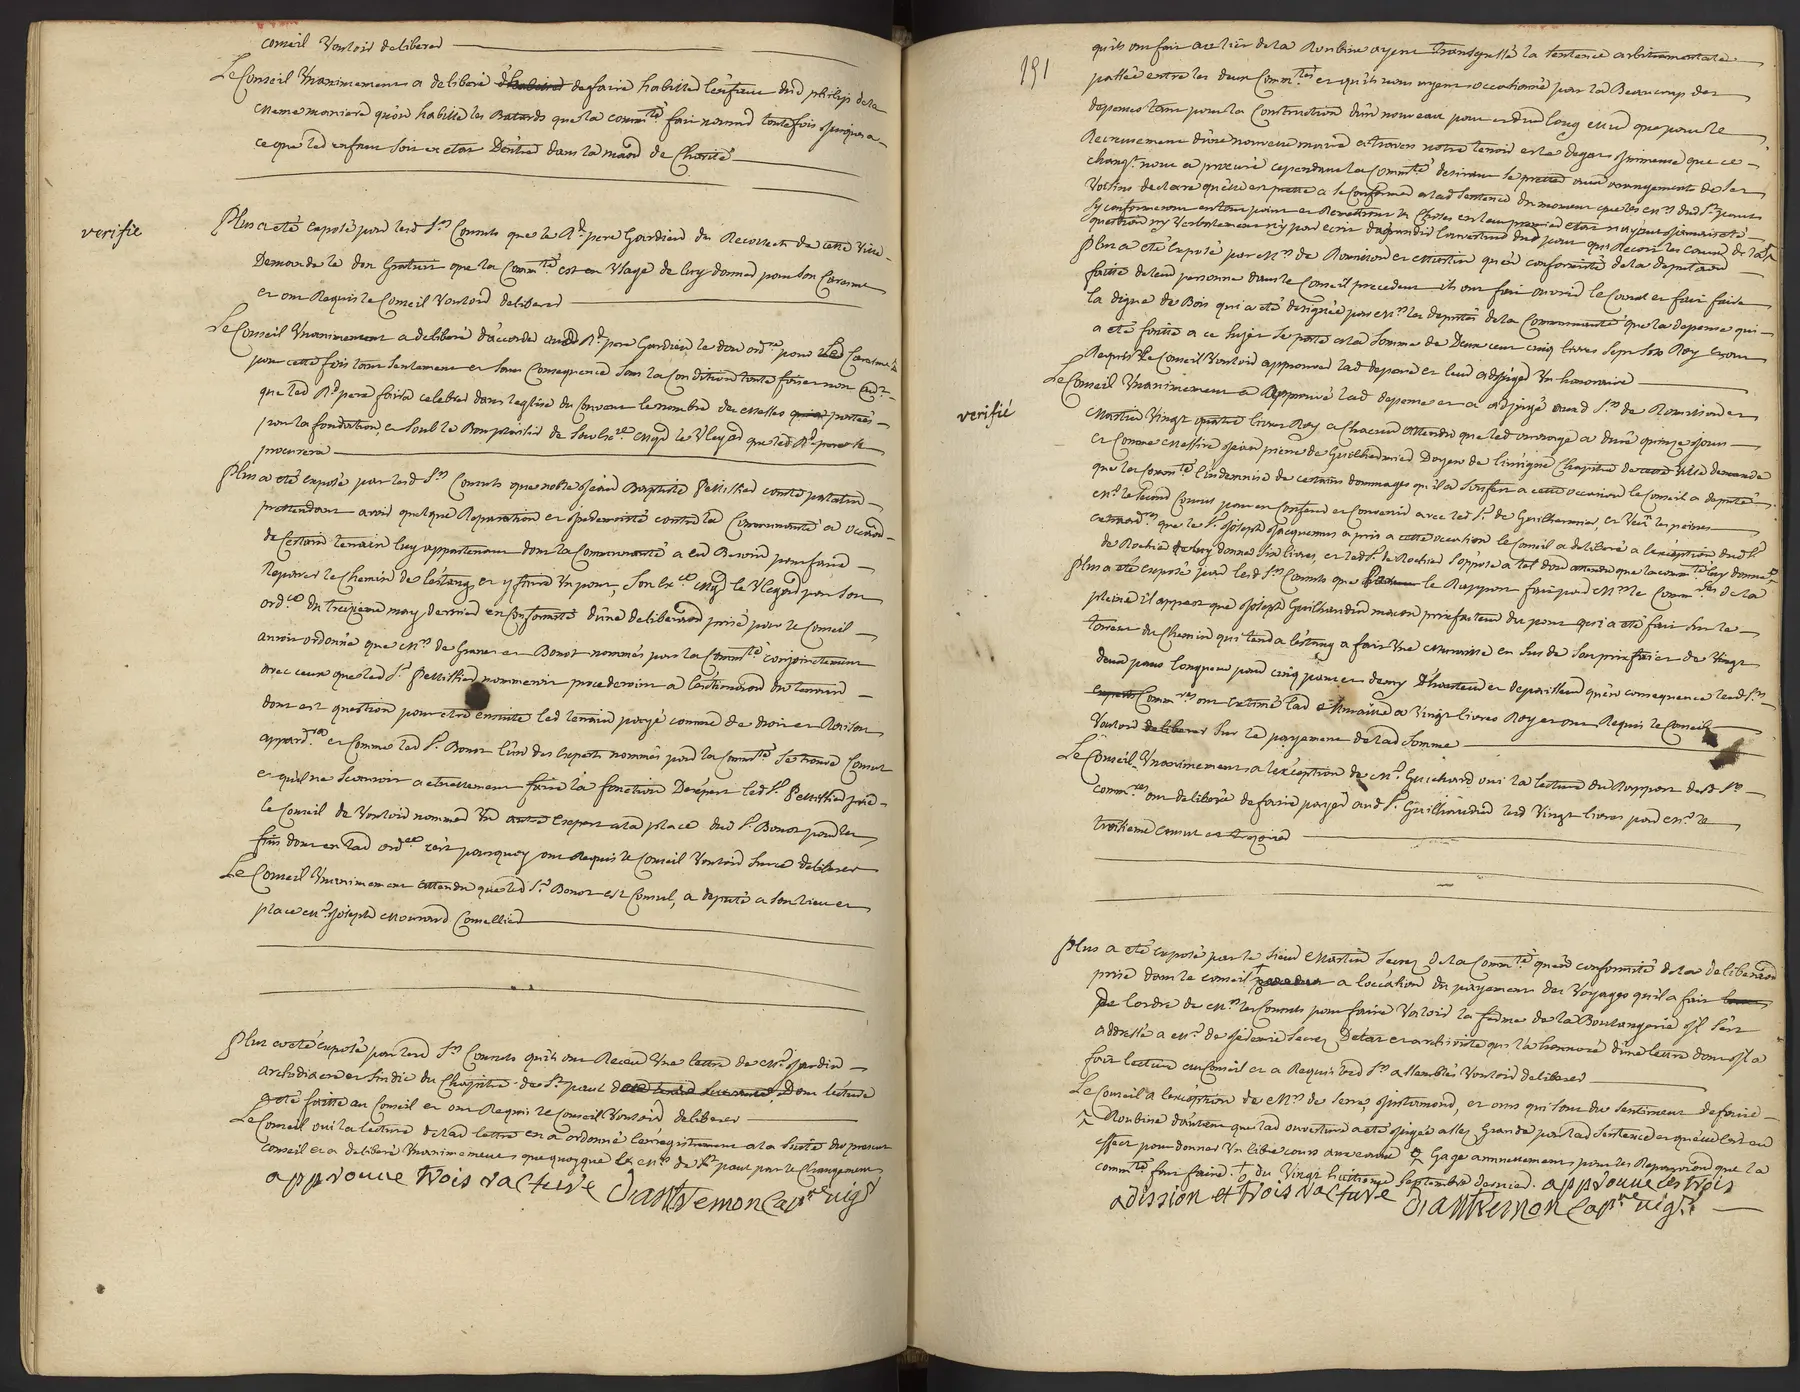 conseil Vouloir deliberer
Le Conseil Unanimement a deliberé de faire habiller l'enfant dud philip de la
meme maniere qu'on habille les Batards que la comm.té fait nourrir toutefois jusques a
ce que led enfant soit en etat D'entrer dans la maison de Charité
verifie
Plus a eté exposé par lesd S.rs Consuls que le R.d pere Gardien des Recollets de cette Ville
Demande le don Gratuit que la Comm.té est en Usage de luy donner pour son Careme
et ont Requis le Conseil Vouloir deliberer
Le Conseil Unanimement a deliberé d'accorder aud R.d pere Gardien le don ord.re pour led Careme
pour cette fois tant seulement et sans Consequence sous la Condition toute fois et non autr.
que led R.d pere faira celebrer dans leglise du Couvent le nombre des messes portées
par la fondation, et soub le Bon plaisir de Son Ex.ce Mgr le Vicelegat que led R.d pere se
procurera
Plus a eté exposé par lesd S.rs Consuls que noble Jean Baptiste Pellissier comte palatin
prettendant avoir quelque Reparation et indemnité contre la Communauté a occasion
de Certain terrain luy appartenant dont la Communauté a eu Besoin pour faire
Reparer le Chemin de l'etang et y faire Un pont, Son Ex.ce Mgr le Vicelegat par son
ord.ce du treizieme may dernier en conformité d'une deliberaon prise par le Conseil
auroit ordonné que M.rs de Graves et Bonot nommés par la Comm.té conjointement
avec ceux que led S.r Pellissier nommeroit procederoint a l'estimaon du terrain
dont est question pour etre ensuite led terrain payé comme de droit et Raison
appard.ra et Comme led S.r Bonot l'un des Experts nommés par la Comm.té se trouve Consul
et qu'il ne scauroit actuellement faire la fonction D'expert led S.r Pellissier prie
le Conseil de Vouloir nommer Un autre Expert a la place dud S.r Bonot pour les
fins dont en lad ord.ce c'est pourquoy ont Requis le Conseil Vouloir sur ce deliberer
Le Conseil Unanimement attendu que led S.r Bonot est Consul, a deputé a son lieu et
place M.r Joseph Mourard Conseiller
Plus a eté exposé par lesd S.rs Consuls qu'ils ont Receu Une lettre de M.r Jardin
archidiacre et sindic du Chapitre de S.t paul Dont lecture
a eté faitte au Conseil et ont Requis le Conseil Vouloir deliberer
Le Conseil oui la lecture de lad lettre en a ordonné l'enregistrement a la suite du present
conseil et a deliberé Unanimement que quoyque les M.rs de S.t paul par le Changement
approuve trois rature Dantremon Cap.ne vig.r
191
qu'ils ont fait au lit de la Roubine ayent transgressé la sentence arbitramentale
passée entre les deux Comm.tés et qu'ils nous ayent occasionné par la Beaucoup de
depenses tant pour la Construction d'un nouveau pont et d'un long mur que pour le
Recreusement d'une nouvelle maire a travers notre terroir et le degat immense que ce
chang.t nous a procuré cependant la Comm.té desirant se preter aux arrangements de ses
Voisins declare qu'elle est prette a se Conformer a lad sentence du moment que les M.rs dud S.t paul
sy conformeront en tout point et Remettront les Choses en leur premier etat n'ayant jamais eté
question ny Verbalement ny par ecrit d'agrandir l'ouverture dud pont qui Recoit les eaux de la
Plus a eté exposé par M.rs de Rouvison et Martin qu'en conformité de la deputaon
faitte de leur personne dans le Conseil precedent ils ont fait ouvrir le Canal et fait faire
la digue de Bois qui a eté designée par M.rs les deputés de la Communauté que la depense qui
a eté faitte a ce sujet se porte a la somme de Deux cent cinq livres sept sols Roy et ont
Requis le Conseil Vouloir approuver lad depense et leur adjuger Un honoraire
verifié
Le Conseil Unanimement a Approuvé lad depense et a adjugé auxd S.rs de Rouvison et
Martin Vingt quatre livres Roy a Chacun attendu que led ouvrage a duré quinze jours
et Comme Messire Jean pierre de Guilhermier Doyen de l'insigne Chapitre de cette Ville demande
que la Comm.té l'indemnise de certains dommages qu'il a souffert a cette occasion le Conseil a deputé
M.r le second Consul pour en conferer et Convenir avec led S.r de Guilhermier, et Veu les peines
extraord.res que le S.r Joseph Jacquemus a pris a cette occasion le Conseil a deliberé a l'exception dud S.r
de Rochier de luy donner Six livres, et led S.r de Rochier s'oppose a tel don attendu que la comm.té luy donne
Plus a eté exposé par lesd S.rs Consuls que le Rapport fait par M.rs les Comm.res de la
pleine il appert que Joseph Guilhaudin macon prixfacteur du pont qui a eté fait sur le
torrent du Chemin qui tend a l'estang a fait Une emmise en sus de son prixfait de Vingt
deux pans longueur pour cinq pans et demy d'hauteur et d'epaisseur qu'en consequence lesd S.rs
Comm.res ont estimé lad emmaise a Vingt livres Roy et ont Requis le Conseil
Vouloir deliberer sur le payement de lad Somme
Le Conseil Unanimement a l'exception de M.r Guichard oui la lecture du Rapport desd S.rs
comm.res ont deliberé de faire payer aud S.r Guilhaudin lesd Vingt livres par M.r le
troisieme Consul et tresorier
Plus a eté exposé par le sieur Martin Secr. de la Comm.té qu'en conformité de la deliberaon
prise dans le conseil a l'occasion du payement des Voyages qu'il a fait
De l'ordre de M.rs les Consuls pour faire Valoir la ferme de la Boulangerie il s'est
addressé a M.r de Joderie Secr. D'etat et archiviste qui la honnoré d'une lettre dont il a
fait lecture au Conseil et a Requis lesd S.rs assemblés Vouloir deliberer
Le Conseil a l'exception de M.rs de Serre, Justamond, et ons qui sont du sentiment de faire
Roubine d'autant que lad ouverture a eté jugée assez Grande par lad sentence et qu'elle l'est en
effet pour donner Un libre cours aux eaux Gage annuellement pour les Reparaons que la
comm.té fait faire. du Vingt huitieme Septembre dernier. approuve les trois
adission et trois rature Dantremon Cap.ne vig.r